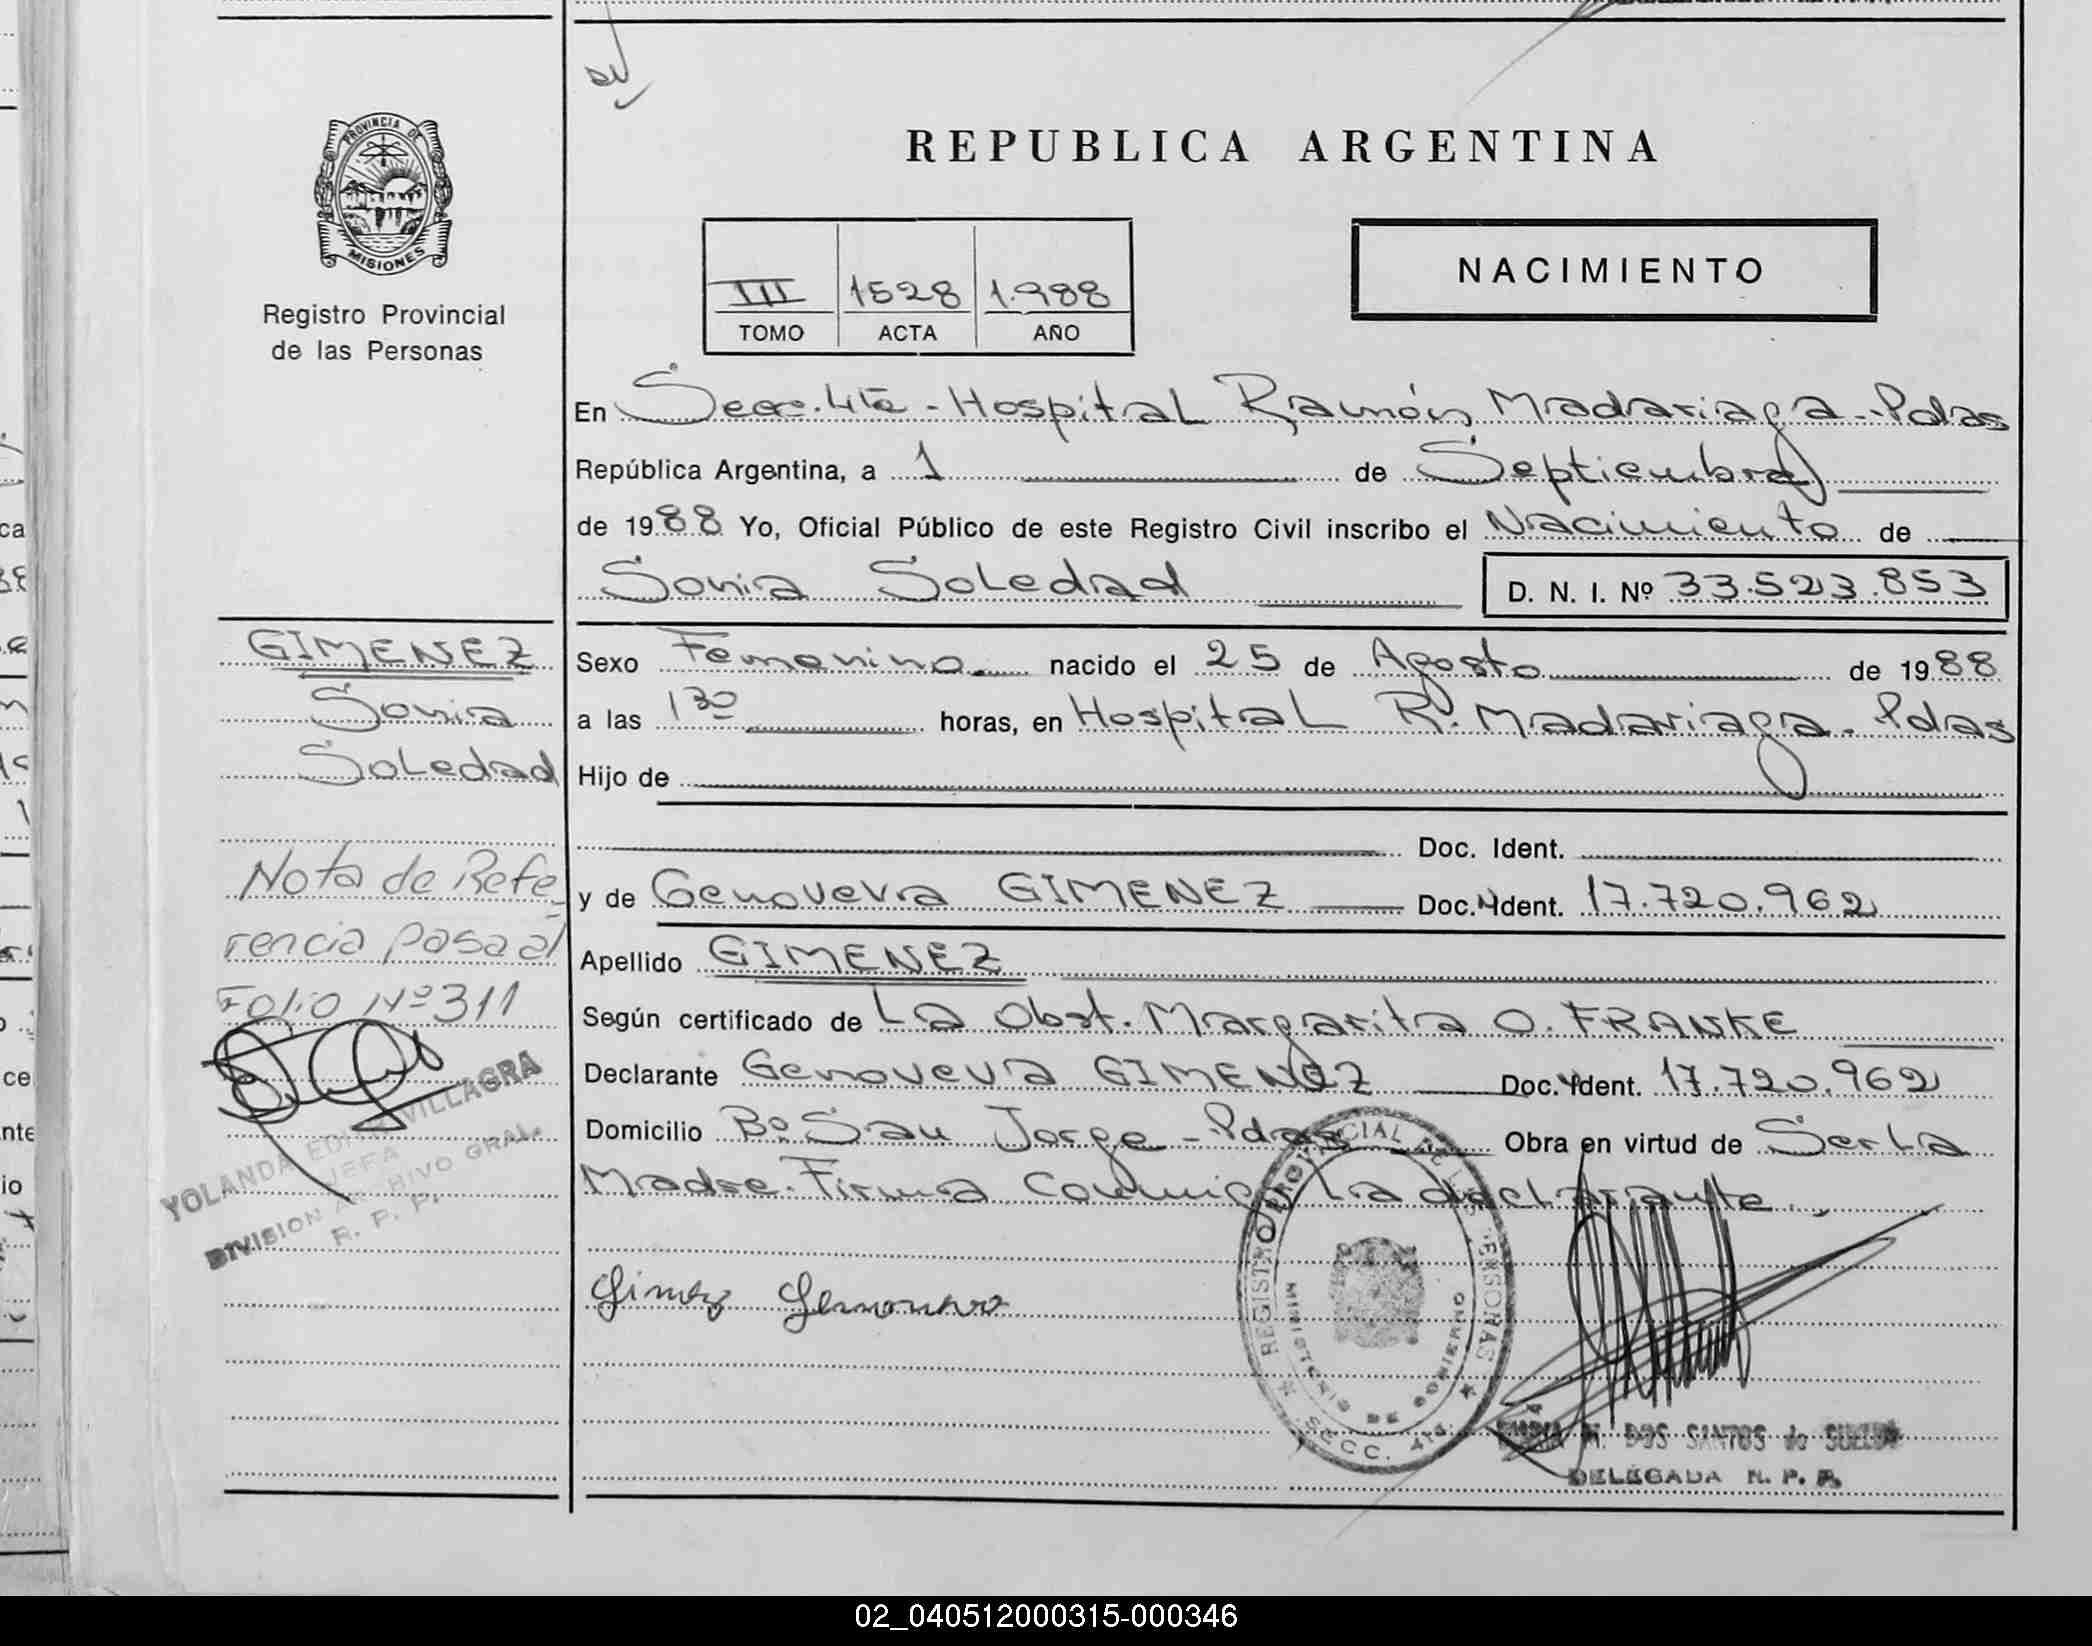 PROVINCIA DE
MISIONES
Registro Provincial
de las Personas
REPUBLICA ARGENTINA
III 1528 1.988
TOMO ACTA AÑO
NACIMIENTO
En Secc. 4ta - Hospital Ramón Madariaga - Pdas
República Argentina, a 1 de Septiembre
de 1988 Yo, Oficial Público de este Registro Civil inscribo el Nacimiento de
Sonia Soledad D. N. I. Nº 33.523.853
Sexo Femenino nacido el 25 de Agosto de 1988
a las 1 30 horas, en Hospital R. Madariaga. Pdas
Hijo de
Doc. Ident.
y de Genoveva GIMENEZ Doc. Ident. 17.720.962
Apellido GIMENEZ
Según certificado de La Obst. Margarita O. FRANKE
Declarante Genoveva GIMENEZ Doc. Ident. 17.720.962
Domicilio Bº San Jorge - Pdas Obra en virtud de Ser La
Madre. Firma Conmigo La declarante.
Gimez Genoveva
GIMENEZ
Sonia
Soledad
Nota de Refe
rencia pasa al
Folio Nº 311
YOLANDA EDITH VILLAGRA
JEFA
DIVISION ARCHIVO GRAL.
R. P. P.
REGISTRO PROVINCIAL DE LAS PERSONAS
MINISTERIO DE GOBIERNO
SECC. 4ta.
M. DOS SANTOS de
DELEGADA R. P. P.
02_040512000315-000346